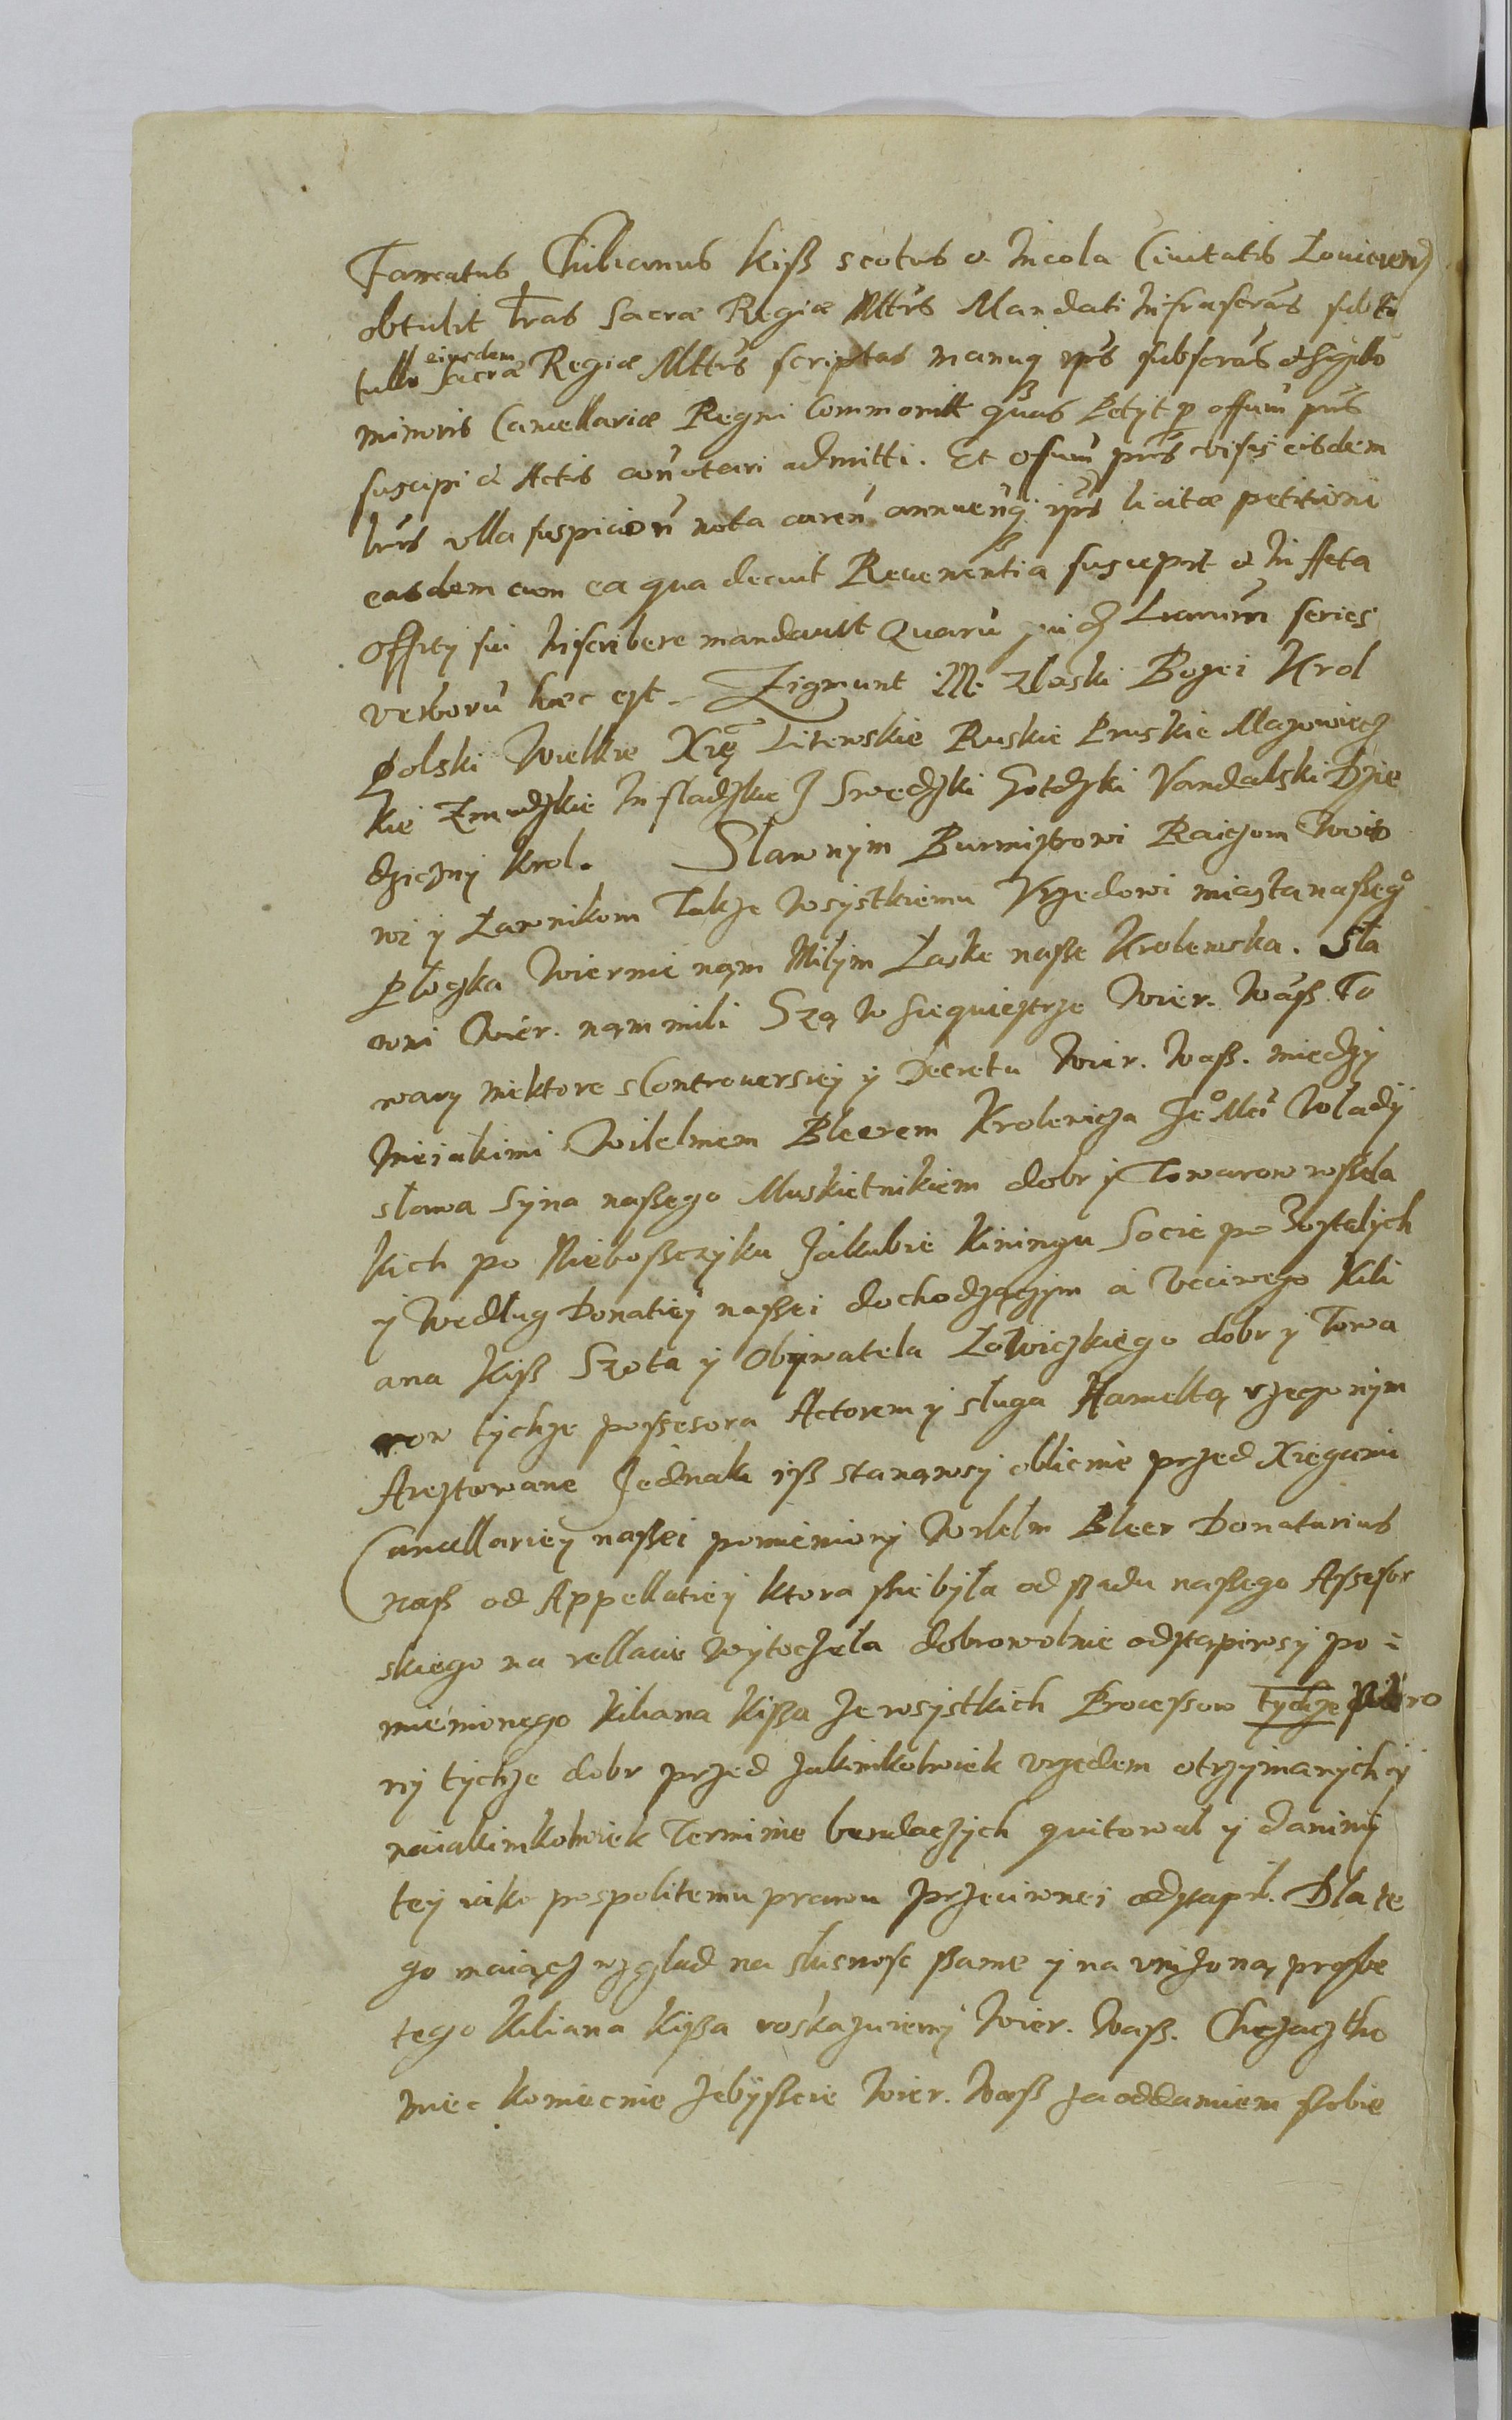 Famatus Chilianus Kiß scotus et Incola Civitatis Lovicien
obtulit Lras Sacræ Regiæ Mttis Mandati Infrascras sub ti
tullo eiusdem Sacræ Regiæ Mttis scriptas manuq ips subscras et sigillo
minoris Cancellariæ Regni Commonit quas Petyt p offum pns
suscipi et Actis connotari admitti. Et offum pns visis eisdem
lris ulla suspicion nota caren annuenq ips licitæ petitioni
easdem cum ea qua decuit Reuerentia suscepit et In Acta
Offity sui Inscribere mandauit Quaru quid Lrarum series
verboru hæc est. Zigmunt III. Z łaski Bozei Krol
Polski Wielkie Xię Litewskie Ruskie Pruskie Mazowiecz
kie Zmudzkie Infladzkie J Swedzki Gotdzki Vandalski Dzie
dzicznj Krol. Sławnijm Burmistrowi Raiczom Woito
wi ÿ Ławnikom Takze Wsystkiemu Vrzedowi miasta naßego
Płoczka Wiernie nąm Miłÿm Łaske naße Krolewska. Sła
wni Wier. nąm mili Szą W Siequiestrze Wier. Waß. To
wary niektore s Controuersiey ÿ Decretu Wier. Waß. miedzÿ
Nieiakimi Wilelmem Bleerem Krolewicza Je Mci Władÿ
sława Sÿna naßego Muskietnikiem dobr ÿ Towarow wßela
kich po Niebosczÿku Jakubie Kiningu Socie po zostalÿch
ÿ Według Donatieÿ naßei dochodzączÿm a Vcciwego Kili
ana Kiß Szota ÿ Obÿwatela Łowiczkiego dobr ÿ Towa
row tÿchze poßesora Actorem ÿ sługa Hameltą rzegonÿm
Arestowane Jednak iß stanąwsÿ oblicnie przed Xięgami
Cancellarieÿ naßei pomienionÿ Wilelm Bleer Donatarius
naß od Appellatieÿ ktora ßie bÿła od ßądu naßego Aßeßor
skiego na rellacie Wÿtoczeła dobrowolnie odstąpiwsÿ po=
mienionego Kiliana Kißa ze wsÿstkich Proceßow tÿchze stro
nÿ tÿchze dobr przed Jakimkolwiek vrzędem otrzÿmanÿch ÿ
na iakimkolwiek Terminie bendaczÿch quitował ÿ daninÿ
teÿ iako pospolitemu prawu przeciwnei odstąpił. Dla te
go maiącz wzgląd na slusnosc ßame ÿ na vnizoną prosbe
tego Kiliana Kißa roskazuiemÿ Wier. Waß. Chczącz tho
miec koniecnie zebÿßcie Wier. Waß za oddaniem ßobie